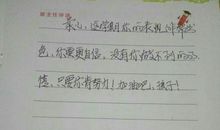 班主任评语
采心，这学期你的表现非常出
色，你要更自信，没有你做不到的事
情，只要你肯努力！加油吧，孩子！